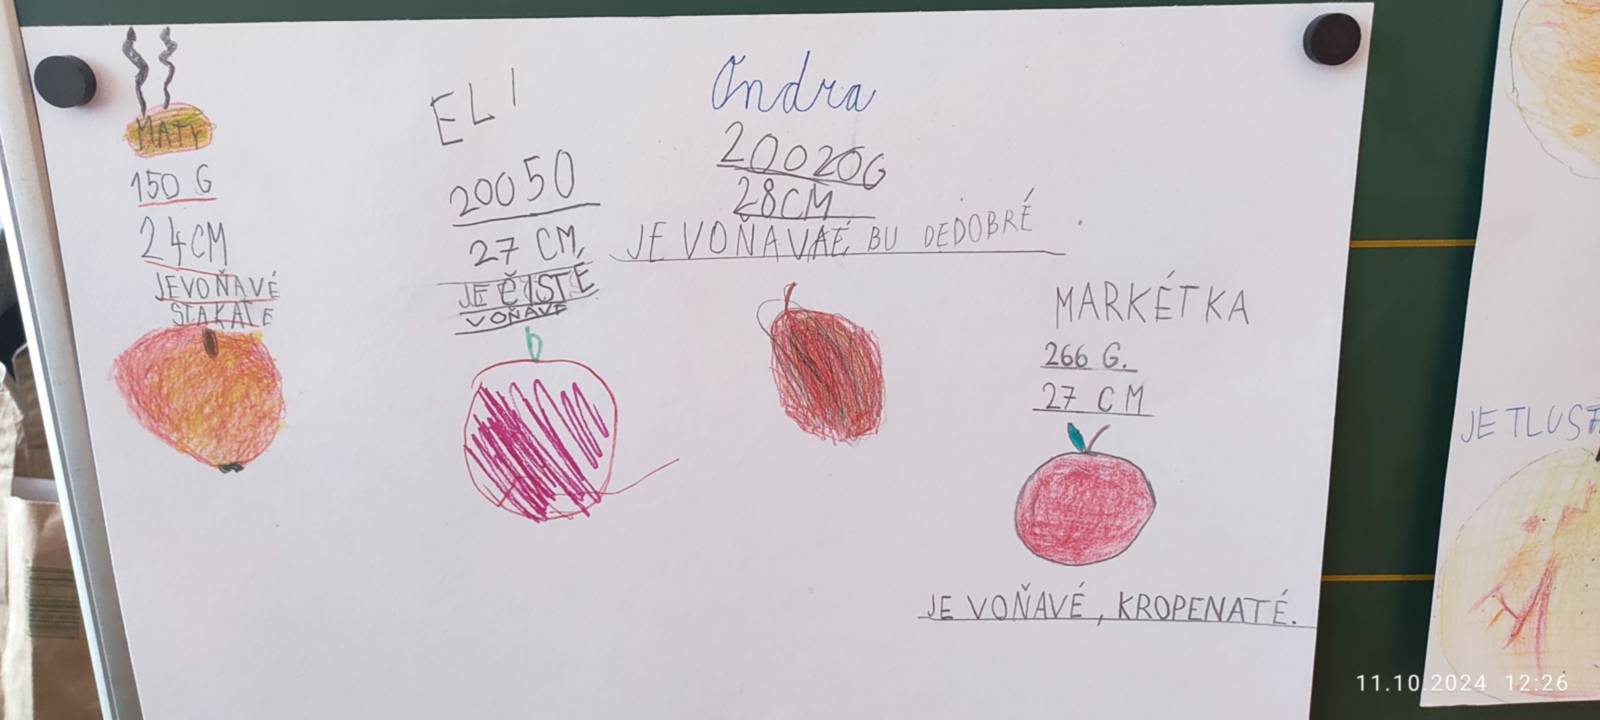 MATY
150 G
24CM
JEVOŇAVÉ
ELI
20050
27 CM,
JE ČISTÉ
VOŇAVÉ
Ondra
20020G
28CM
JE VOŇAVAÉ, BU DEDOBRÉ
MARKÉTKA
266 G.
27 CM
JE VOŇAVÉ, KROPENATÉ.
JE TLUST
11.10.2024 12:26